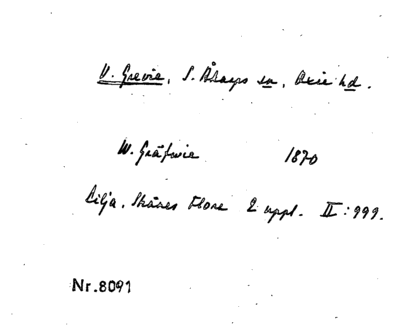 V. Grevie, S. Åsarps sn, Oxie hd.
W. Gräfwie 1870
Lilja, Skånes Flora 2 uppl. II:999.
Nr.8091